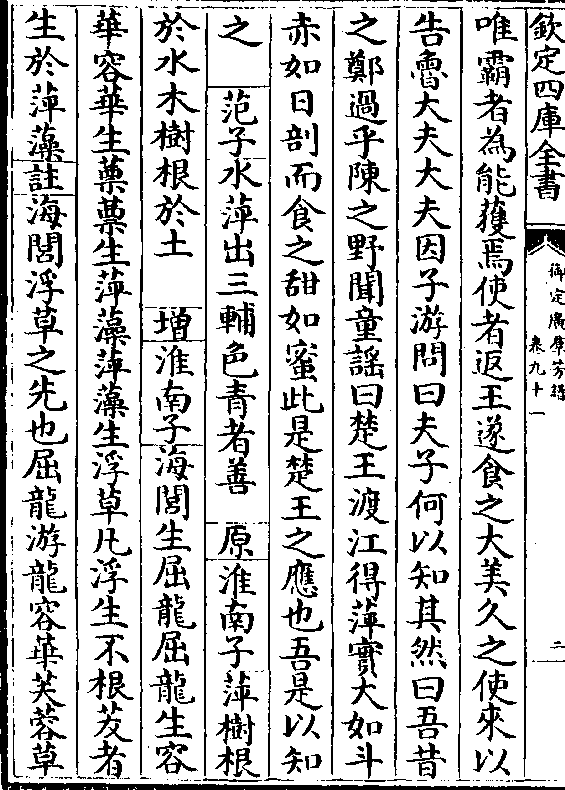 欽定四庫全書
御定廣羣芳譜
卷九十一
二
唯霸者為能獲焉使者返王遂食之大美久之使來以
告魯大夫大夫因子游問曰夫子何以知其然曰吾昔
之鄭過乎陳之野聞童謡曰楚王渡江得萍實大如斗
赤如日剖而食之甜如蜜此是楚王之應也吾是以知
之 范子水萍出三輔色青者善 原淮南子萍樹根
於水木樹根於土 増淮南子海閭生屈龍屈龍生容
華容華生蔈蔈生萍藻萍藻生浮草凡浮生不根茇者
生於萍藻註海閭浮草之先也屈龍游龍容華芙蓉草